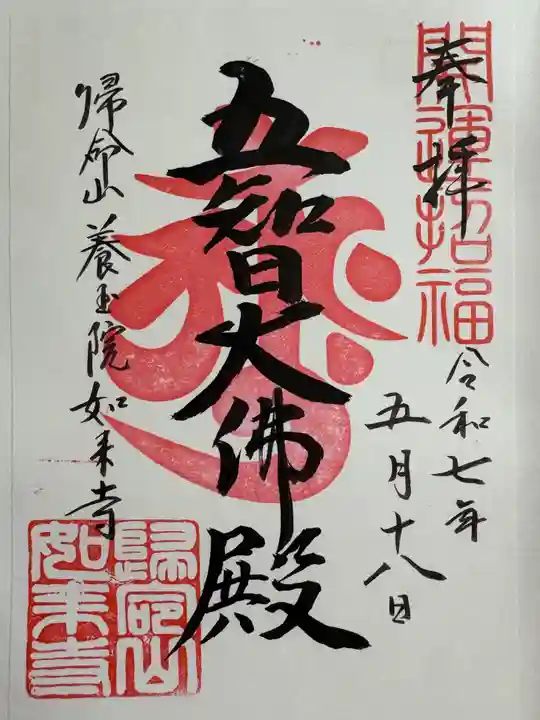 開運招福
奉拝
令和七年
五月十八日
五智大佛殿
帰命山 養玉院如来寺
歸命山
如来寺